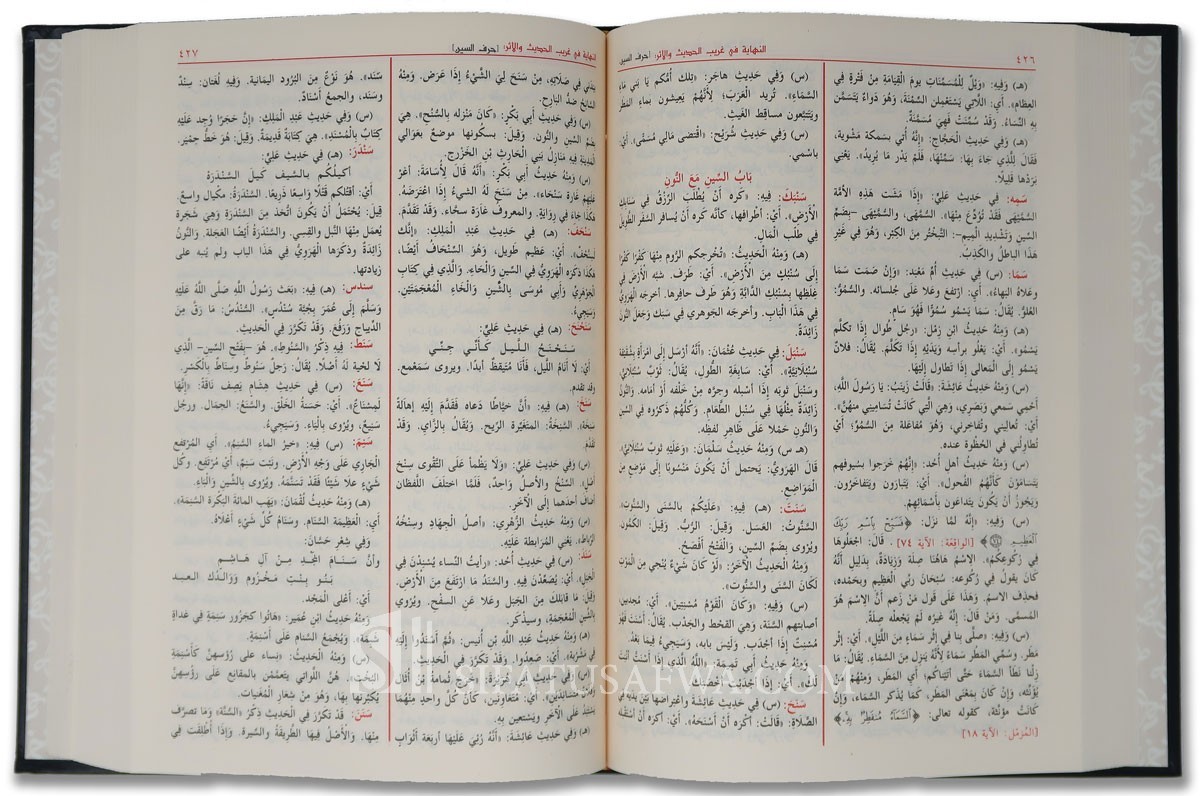 ٤٢٦
النهاية في غريب الحديث والأثر: (حرف السين)
(هـ) وفيه: «وَيْلٌ لِلْمُسَمَّنَاتِ يومَ الْقِيَامَةِ مِنْ فَتْرَةٍ فِي
العِظَام». أَيْ: اللَّاتِي يَسْتَعْمِلْنَ السُّمْنَةَ، وَهُوَ دَوَاءٌ يَتَسَمَّن
بِهِ النِّسَاءُ. وَقَدْ سُمِّنَتْ فَهِيَ مُسَمَّنَةٌ.
(هـ) وَفِي حَدِيثِ الْحَجَّاجِ: «إِنَّهُ أُتِي بِسَمكة مَشْوية،
فَقَالَ لِلَّذِي جَاءَ بِهَا: سَمِّنْها، فَلَمْ يَدْر مَا يُريدُ». يَعْنِي
بَرّدْها قَلِيلًا.
سَمِهَ: فِي حَدِيثِ عَلِيٍّ: «إِذَا مَشَت هَذِهِ الأمَّة
السُّمَّيْهَى فَقَدْ تُوُدِّعَ مِنْهَا». السُّمَّهَى، والسُّمَّيْهَى -بِضَمِّ
السِّين وَتَشْدِيدِ الْمِيمِ-: التَّبَخْتُر مِنَ الكِبْر، وَهُوَ فِي غَيْرِ
هَذَا الباطلُ والكَذِبُ.
سَمَا: (س) فِي حَدِيثِ أُمِّ مَعْبَد: «وَإِنْ صَمَتَ سَمَا
وعَلَاهُ البهاءُ». أَيِ: ارْتَفَعَ وعَلَا عَلَى جُلَسائه. والسُّمُوُّ:
العُلُوُّ. يُقَالُ: سَمَا يَسْمُو سُمُوًّا فَهُوَ سَامٍ.
(هـ) وَمِنْهُ حَدِيثُ ابْنِ زِمْل: «رجُل طُوال إِذَا تكلَّم
يَسْمُو». أَيْ: يَعْلُو برأسِه ويَدَيْهِ إِذَا تَكَلَّمَ. يُقَالُ: فلانٌ
يَسْمُو إِلَى المَعالِي إِذَا تَطاول إِلَيْهَا.
(س) وَمِنْهُ حَدِيثُ عَائِشَةَ: «قَالَتْ زَيْنَبُ: يَا رَسُولَ اللَّهِ،
أَحْمِي سَمعي وَبَصَري، وَهِيَ الَّتِي كَانَتْ تُسَامِينِي منْهنّ».
أَيْ: تُعالِيني وتُفاخِرني، وَهُوَ مُفاعَلة مِنَ السُّمُوِّ: أَيْ
تُطاولُني فِي الحُظْوة عنده.
(س) وَمِنْهُ حديثُ أهلِ أُحُد: «إِنَّهُمْ خَرَجوا بسُيوفهم
يَتَسَامَوْنَ كَأَنَّهُمُ الفُحول». أَيْ: يَتَبَارَون ويَتَفاخَرُون.
وَيَجُوزُ أَنْ يَكُونَ يتداعون بأَسْمَائِهم.
(س) وَفِيهِ: «إِنَّهُ لمَّا نَزَل: ﴿فَسَبِّحْ بِاسْمِ رَبِّكَ
الْعَظِيمِ ﴿٧٤﴾﴾ [الواقعة: الآية ٧٤]. قَالَ: اجْعَلُوهَا
فِي رُكُوعكم». الِاسْمُ هَاهُنَا صِلَة وَزِيَادَةٌ، بِدَلِيلِ أَنَّهُ
كَانَ يَقُولُ فِي رُكُوعِهِ: سُبْحَانَ رَبِّيَ الْعَظِيمِ وبحَمْده،
فَحذِف الاسم. وَهَذَا عَلَى قَوْلِ مَن زَعم أَنَّ الِاسْمَ هُوَ
المُسمّى. وَمَنْ قَالَ: إِنَّهُ غَيْرُه لَمْ يَجْعَله صِلَةً.
(س) وَفِيهِ: «صلَّى بِنَا فِي إثْر سَماءٍ مِنَ اللَّيْل». أَيْ: إثْر
مَطَر. وسُمِّي المَطر سَماءً لِأَنَّهُ يَنزِل مِنَ السَّماءِ. يُقَالُ: مَا
زِلْنا نَطأُ السَّماءَ حَتَّى أَتَيْنَاكُم، أَيِ المطَر، وَمِنْهُمْ مَنْ
يُؤَنِّثُهُ، وَإِنْ كَانَ بِمَعْنَى المَطَر، كَمَا يُذَكَّر السَّماء، وَإِنْ
كَانَتْ مؤنَّثة، كقوله تعالى: ﴿السَّمَاءُ مُنفَطِرٌ بِهِ﴾
[المزمل: الآية ١٨]
(س) وَفِي حَدِيثِ هاجَر: «تِلْكَ أُمُّكم يَا بَنِي مَاءِ
السَّمَاءِ». تُريد الْعَرَبَ؛ لِأَنَّهُمْ يَعِيشُون بماءِ المَطر
ويَتَتَبَّعون مساقِط الغَيث.
(س) وَفِي حَدِيثِ شُرَيْحٍ: «اقْتَضى مَالِي مُسَمّى». أَيْ:
باسْمِي.
بَابُ السِّينِ مَعَ النُّونِ
سَنْبَكَ: فِيهِ: «كَرِه أَنْ يُطلَب الرِّزْق فِي سَنَابِك
الْأَرْضِ». أَيْ: أَطْرَافِهَا، كأنَّه كَره أَنْ يُسافِر السَّفر الطَّوِيلَ
فِي طَلَب الْمَالِ.
(هـ) وَمِنْهُ الْحَدِيثُ: «تُخْرِجكم الرُّوم مِنْهَا كَفْرًا كَفْرًا
إِلَى سُنْبُك مِنَ الْأَرْضِ». أَيْ: طَرَف. شبَّه الأرضَ فِي
غلظِها بِسُنْبُك الدَّابَّةِ وَهُوَ طَرف حافِرها. أخرجَه الْهَرَوِيُّ
فِي هَذَا الْبَابِ. وأخرَجَه الجَوهري فِي سَبَك وجَعل النُّونَ
زَائِدَةً.
سَنْبَلَ: فِي حَدِيثِ عُثْمَانَ: «أَنَّهُ أَرْسل إِلَى امْرَأَةٍ بشُقَيْقَة
سُنْبُلَانِيَّة». أَيْ: سابِغة الطُّول، يُقَالُ: ثَوْبٌ سُنْبُلَانِيّ،
وسَنْبَلَ ثوبَه إِذَا أسْبَله وجرَّه مِنْ خَلْفه أَوْ أمَامه. وَالنُّونُ
زَائِدَةٌ مثْلُها فِي سُنْبل الطَّعام. وكُلُّهُم ذَكَرُوه فِي السِّين
وَالنُّونِ حَملا عَلَى ظَاهِرِ لَفْظِهِ.
(هـ س) وَمِنْهُ حَدِيثُ سَلْمَانَ: «وَعَلَيْهِ ثوبٌ سُنْبُلَانِيّ».
قَالَ الهَرَوِيُّ: يَحتمل أَنْ يَكُونَ مَنْسُوبًا إِلَى مَوْضِعٍ مِنَ
الْمَوَاضِعِ.
سَنَتَ: (هـ) فِيهِ: «عَلَيْكُمْ بالسَّنَى والسَّنُّوت».
السَّنُّوتُ: العَسَل. وَقِيلَ: الرُّبُّ. وَقِيلَ: الكَمُّون.
ويُرْوى بِضَمِّ السِّينِ، وَالْفَتْحُ أَفْصَحُ.
وَمِنْهُ الْحَدِيثُ الْآخَرُ: «لَوْ كَانَ شَيْءٌ يُنْجي مِنَ الْمَوْتِ
لَكَانَ السَّنَى والسَّنُّوت».
(س) وَفِيهِ: «وَكَانَ الْقَوْمُ مُسْنِتِينَ». أَيْ: مُجدبين
أَصَابَتْهُمُ السَّنَة، وَهِيَ القَحْط والجَدْب. يُقَالُ: أَسْنَتَ فَهُوَ
مُسْنِتٌ إِذَا أَجْدَب. وَلَيْسَ بَابَهُ، وَسَيَجِيءُ فِيمَا بَعْدُ.
وَمِنْهُ حَدِيثُ أَبِي تَمِيمَة: «اللَّهُ الَّذِي إِذَا أَسْنَتَّ أَنْبَتَ
لَكَ». أَيْ: إِذَا أجْدَبْت أخْصَبَك.
سَنَحَ: (س) فِي حَدِيثِ عَائِشَةَ واعتِراضِها بَيْنَ يَدَيْهِ فِي
الصَّلاةِ: «قَالَتْ: أَكْرَه أَنْ أَسْنَحَهُ». أَيْ: أَكْرَه أَنْ أَسْتَقْبِلَه
النهاية في غريب الحديث والأثر: (حرف السين)
٤٢٧
بِبَدَنِي فِي صَلَاتِهِ، مِنْ سَنَحَ لِيَ الشَّيْءُ إِذَا عَرَضَ. وَمِنْهُ
السَّانِحُ ضِدُّ البَارِح.
(س) وَفِي حَدِيثِ أَبِي بَكْرٍ: «كَانَ مَنْزِلُه بالسُّنْح». هِيَ
بِضَمِّ السِّينِ وَالنُّونِ. وَقِيلَ: بِسُكُونِهَا موضعٌ بعَوالي
الْمَدِينَةِ فِيهِ مَنَازِلُ بَنِي الْحَارِثِ بْنِ الْخَزْرَجِ.
(س) وَمِنْهُ حَدِيثُ أَبِي بَكْرٍ: «أَنَّهُ قَالَ لِأُسَامَةَ: أَغِرْ
عَلَيْهِمْ غَارَةً سَنْحَاء». مِنْ سَنَح لَهُ الشيءُ إِذَا اعْتَرَضَهُ.
هَكَذَا جَاءَ فِي رِوَايَةٍ. وَالْمَعْرُوفُ غَارَة سَحَّاء. وَقَدْ تَقَدَّمَ.
سَنْحَفَ: (هـ) فِي حَدِيثِ عَبْدِ الْمَلِكِ: «إنَّك
لَسِنَّحْفٌ». أَيْ: عَظيمٌ طَوِيلٌ، وَهُوَ السِّنْحَافُ أَيْضًا،
هَكَذَا ذَكَرَهُ الْهَرَوِيُّ فِي السِّينِ وَالْحَاءِ. وَالَّذِي فِي كِتَابِ
الجَوْهَرِيِّ وأَبِي مُوسَى بالشِّين وَالْخَاءِ الْمُعْجَمَتَيْنِ.
وَسَيَجِيءُ.
سَنَحْنَحَ: (هـ) فِي حَدِيثِ عَلِيٍّ:
سَنَحْنَحُ اللَّيل كَأَنِّي جِنِّي
أَيْ: لَا أَنَامُ اللَّيل، فَأَنَا مُتَيَقِّظٌ أبدًا. ويروى سَمَعْمَع.
وقد تقدم.
سَنِخَ: (هـ) فِيهِ: «أنَّ خيَّاطًا دَعاه فَقَدَّمَ إِلَيْهِ إهالَةً
سَنِخَة». السَّنِخَةُ: المتَغيّرة الرِّيح. وَيُقَالُ بِالزَّاي. وَقَدْ
تَقَدَّمَ.
(س) وَفِي حَدِيثِ عَلِيٍّ: «وَلَا يَظْمأُ عَلَى التَّقْوى سِنْخُ
أَصْل». السِّنْخُ والأصْل واحِدٌ، فَلَمَّا اختَلَف اللَّفظان
أَضاف أَحَدَهما إِلَى الْآخَرِ.
(س) وَمِنْهُ حَدِيثُ الزُّهْرِيِّ: «أصلُ الْجِهَادِ وسِنْخُهُ
الرِّبَاط». يَعْنِي المُرابَطة عَلَيْهِ.
سَنَدَ: (س) فِي حَدِيثِ أُحُد: «رأيتُ النِّساء يُسْنِدْنَ فِي
الْجَبَلِ». أَيْ: يُصَعِّدْنَ فِيهِ. والسَّنَدُ مَا ارْتَفَعَ مِنَ الأرْض.
وَقِيلَ: مَا قابَلك مِنَ الجَبَل وَعَلَا عَنِ السَّفح. ويُرْوى
بِالشِّينِ الْمُعْجَمَةِ، وسيُذكر.
(هـ) وَمِنْهُ حَدِيثُ عَبْدِ اللَّهِ بْنِ أُنَيس: «ثُمَّ أَسْنَدُوا إِلَيْهِ
فِي مَشْرُبة». أَيْ: صَعِدُوا. وَقَدْ تَكَرَّرَ فِي الْحَدِيثِ.
(هـ) وَفِي حَدِيثِ عَائِشَةَ: «أَنَّهُ رُئِيَ عَلَيْهَا أربعة أثْوَابِ
سَنَد». هُوَ نَوْعٌ مِنَ البُرُودِ الْيَمَانِيَةِ. وَفِيهِ لُغَتان: سِنْدٌ
وسَنَد، وَالْجَمْعُ أَسْنَاد.
(س) وَفِي حَدِيثِ عَبْدِ الْمَلِكِ: «إِنَّ حَجَرًا وُجد عَلَيْهِ
كِتَابٌ بِالْمُسْنَد». هِيَ كِتَابَةٌ قَدِيمَةٌ. وَقِيلَ: هُوَ خَطُّ حِمْيَر.
سَنْدَرَ: (هـ) فِي حَدِيثِ عَلِيٍّ:
أكيلُكُم بالسَّيف كَيلَ السَّنْدَرَة
أَيْ: أقتُلكم قَتْلًا وَاسِعًا ذَرِيعًا. السَّنْدَرَةُ: مكيال واسعٌ.
قِيلَ: يُحْتمل أَنْ يَكُونَ اتّخذ مِنَ السَّنْدَرَةِ وَهِيَ شَجَرة
يُعمل مِنْهَا النَّبْل والقِسِي. والسَّنْدَرَةُ أَيْضًا العَجَلة. وَالنُّونُ
زَائِدَةٌ وَذَكَرَهَا الْهَرَوِيُّ فِي هَذَا الْبَابِ وَلَمْ يُنبه على
زيادتها.
سندس: (هـ) فِيهِ: «بَعَث رَسُولُ اللَّهِ صَلَّى اللَّهُ عَلَيْهِ
وَسَلَّمَ إِلَى عُمَرَ بِجُبَّة سُنْدُس». السُّنْدُسُ: مَا رَقَّ مِنَ
الدِّيباج ورَفُع. وَقَدْ تَكَرَّرَ فِي الْحَدِيثِ.
سَنَطَ: فِيهِ ذِكْرُ «السَّنُوط». هُوَ -بِفَتْحِ السِّينِ- الَّذِي
لَا لحْية لَهُ أصْلًا. يُقَالُ: رَجلٌ سَنُوط وسِنَاط بالكسْرِ.
سَنَعَ: (س) فِي حَدِيثِ هِشَامٍ يَصِف نَاقَةً: «إنَّها
لَمِسْنَاع». أَيْ: حَسَنَةُ الخَلْق. والسَّنَعُ: الجمال. ورجُل
سَنِيعٌ، ويُرْوَى بِالْيَاءِ. وَسَيَجِيءُ.
سَنِمَ: (س) فِيهِ: «خَيْرُ الماءِ السَّنِمُ». أَيِ المرْتَفِع
الْجَارِي عَلَى وَجْهِ الْأَرْضِ. ونَبْت سَنِم. أَيْ: مُرْتَفِع. وكل
شَيْءٍ عَلَا شَيْئًا فَقَدْ تَسَنَّمَهُ. وَيُرْوَى بِالشِّينِ وَالْبَاءِ.
(هـ) وَمِنْهُ حَدِيثُ لُقْمَانَ: «يَهَب المائة البَكْرَة السَّنِمَة».
أَيِ: العَظِيمَة السَّنَام. وسَنَامُ كُلِّ شَيْءٍ أعْلاهُ.
وَفِي شِعْرِ حَسَّانَ:
وأنَّ سَنَامَ المَجْدِ مِنْ آلِ هَاشِمٍ
بَنُو بِنْتِ مَخْزُومٍ وَوَالدُك العبدُ
أَيْ: أَعْلَى الْمَجْد.
وَمِنْهُ حَدِيثُ ابْنِ عُمَيْرٍ: «هَاتُوا كجَزُور سَنِمَة فِي غَداةٍ
شَبِمَة». ويُجْمَعُ السَّنَام عَلَى أَسْنِمَة.
(س) وَمِنْهُ الْحَدِيثُ: «نِساء عَلَى رُؤسهنّ كأَسْنِمَةِ
البُخْتِ». هُنَّ اللَّواتي يَتَعمَّمن بالمقَانِع عَلَى رُؤُسهنّ
يُكَبِّرْنَها بِهَا، وَهُوَ مِنْ شِعَار المُغَنِّيات.
سَنَنَ: قَدْ تَكَرَّرَ فِي الْحَدِيثِ ذِكْرُ «السُّنَّة» وَمَا تصرَّف
مِنْهَا. والأصْلُ فِيهَا الطَّرِيقَةُ والسِّيرة. وَإِذَا أُطْلِقَت فِي
SIFATUSAFWA.COM